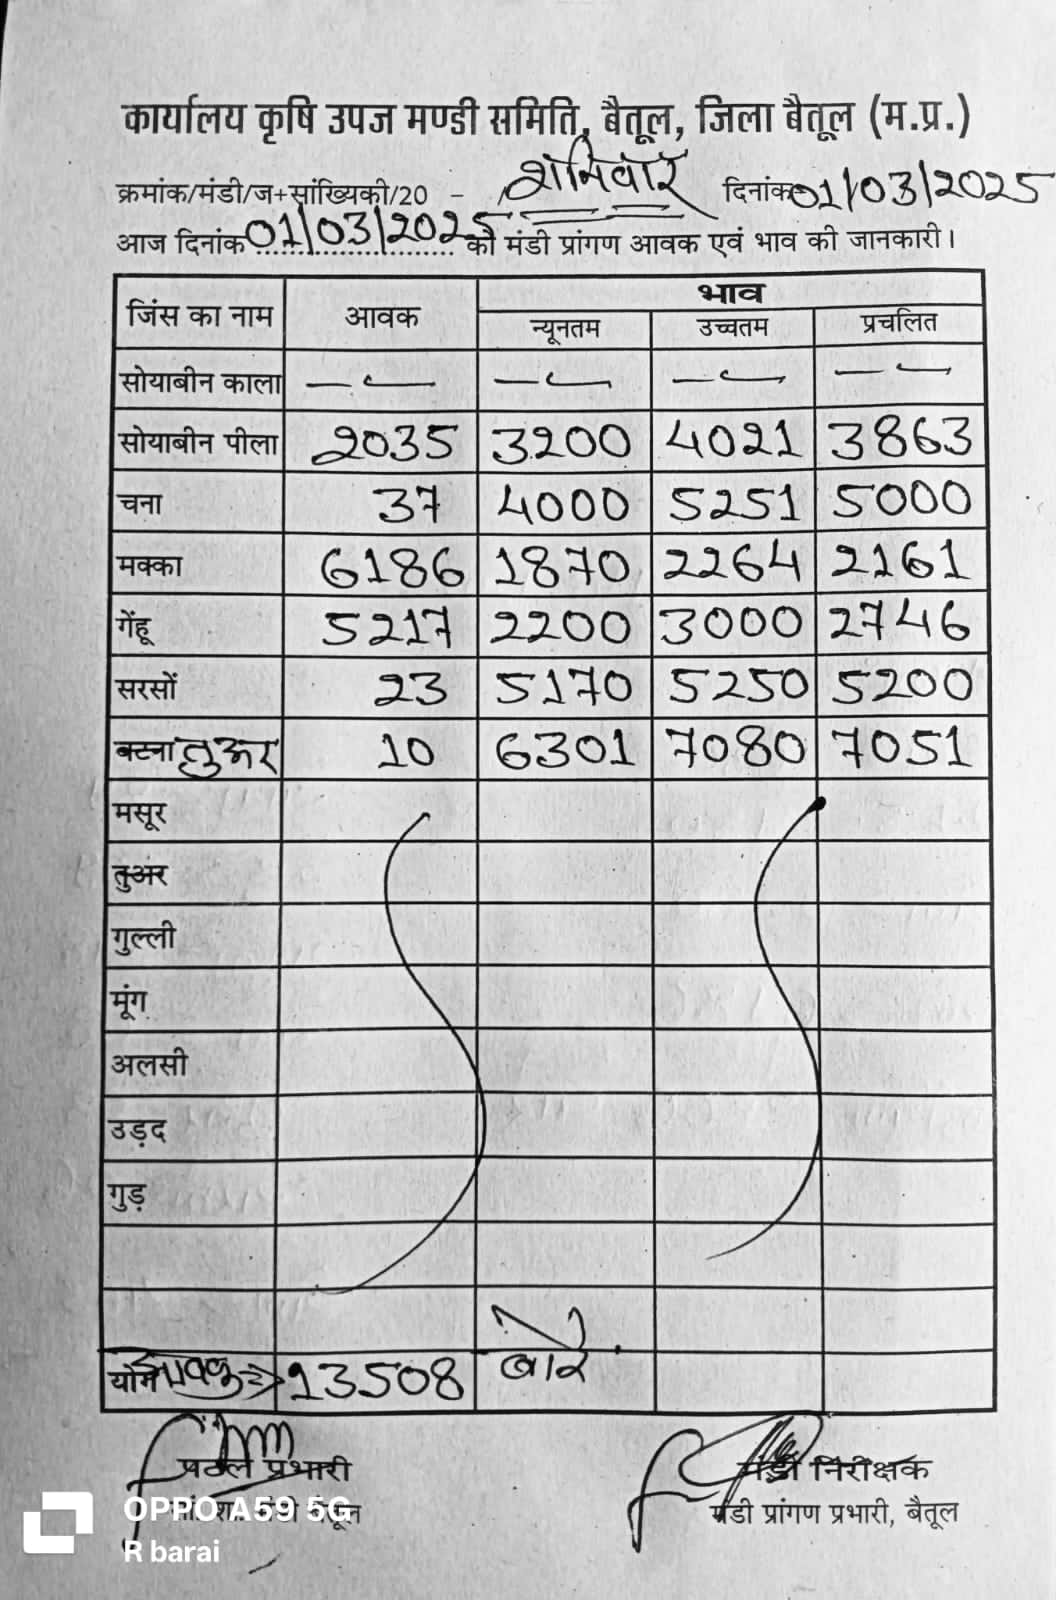 कार्यालय कृषि उपज मण्डी समिति, बैतूल, जिला बैतूल (म.प्र.)
क्रमांक/मंडी/ज+सांख्यिकी/20 - शनिवार दिनांक 01/03/2025
आज दिनांक 01/03/2025 को मंडी प्रांगण आवक एवं भाव की जानकारी।
जिंस का नाम आवक भाव
न्यूनतम उच्चतम प्रचलित
सोयाबीन काला — — — —
सोयाबीन पीला 2035 3200 4021 3863
चना 37 4000 5251 5000
मक्का 6186 1870 2264 2161
गेंहू 5217 2200 3000 2746
सरसों 23 5170 5250 5200
बटना तुअर 10 6301 7080 7051
मसूर
तुअर
गुल्ली
मूंग
अलसी
उड़द
गुड़
योग आवक => 13508 बोरे
प्रभारी मंडी निरीक्षक
बैतूल मंडी प्रांगण प्रभारी, बैतूल
OPPO A59 5G
R barai